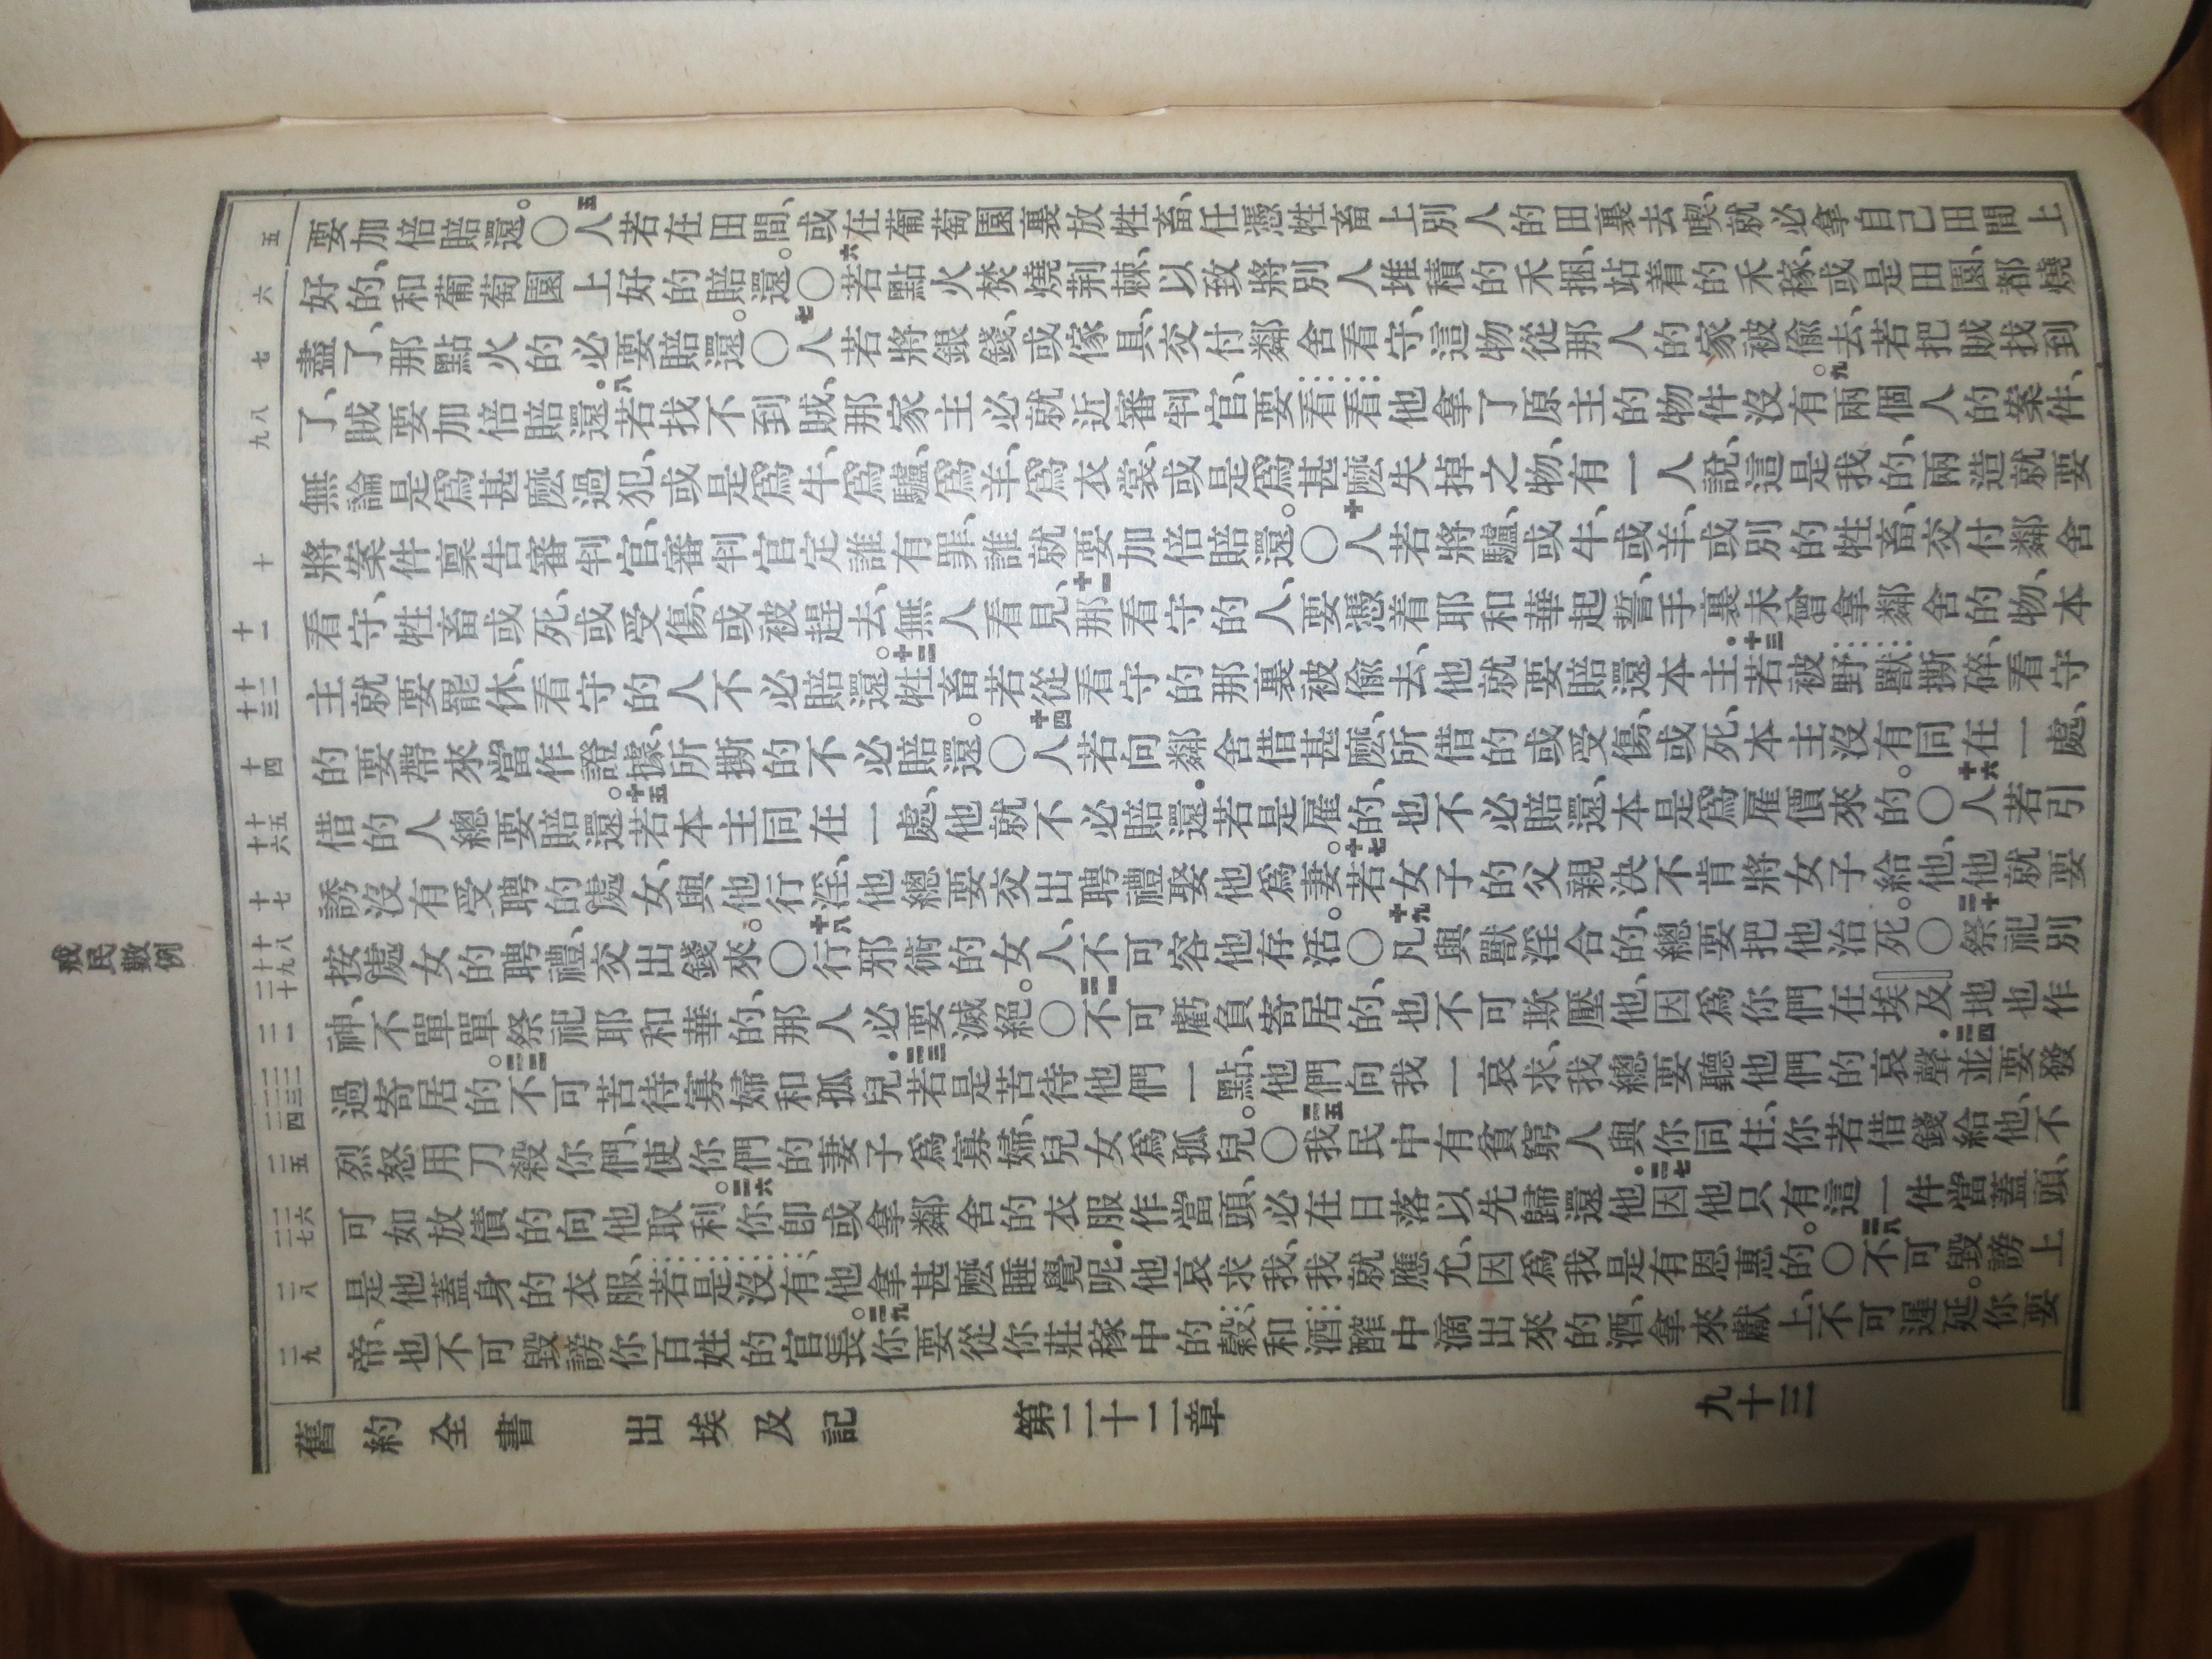 戒民數例
五
要加倍賠還。〇五人若在田間、或在葡萄園裏放牲畜、任憑牲畜上別人的田裏去喫、就必拿自己田間上
六
好的、和葡萄園上好的賠還。〇六若點火焚燒荆棘、以致將別人堆積的禾捆、站着的禾稼、或是田園、都燒
七
盡了、那點火的必要賠還。〇七人若將銀錢、或傢具、交付鄰舍看守、這物從那人的家被偷去、若把賊找到
八九
了、賊要加倍賠還。八若找不到賊、那家主必就近審判官、要看看他拿了原主的物件沒有。九兩個人的案件、
無論是爲甚麼過犯、或是爲牛、爲驢、爲羊、爲衣裳、或是爲甚麼失掉之物、有一人說、這是我的、兩造就要
十
將案件稟告審判官、審判官定誰有罪、誰就要加倍賠還。〇十人若將驢、或牛、或羊、或別的牲畜、交付鄰舍
十一
看守、牲畜或死、或受傷、或被趕去、無人看見、十一那看守的人、要憑着耶和華起誓、手裏未曾拿鄰舍的物、本
十二十三
主就要罷休、看守的人不必賠還。十二牲畜若從看守的那裏被偷去、他就要賠還本主。十三若被野獸撕碎、看守
十四
的要帶來當作證據、所撕的不必賠還。〇十四人若向鄰舍借甚麼、所借的或受傷、或死、本主沒有同在一處、
十五十六
借的人總要賠還。十五若本主同在一處、他就不必賠還。若是雇的、也不必賠還、本是爲雇價來的。〇十六人若引
十七
誘沒有受聘的處女、與他行淫、他總要交出聘禮娶他爲妻。十七若女子的父親決不肯將女子給他、他就要
十八十九二十
按處女的聘禮、交出錢來。〇十八行邪術的女人、不可容他存活。〇十九凡與獸淫合的、總要把他治死。〇二十祭祀別
二一
神、不單單祭祀耶和華的、那人必要滅絕。〇二一不可虧負寄居的、也不可欺壓他、因爲你們在埃及地也作
二二二三二四
過寄居的。二二不可苦待寡婦和孤兒。二三若是苦待他們一點、他們向我一哀求、我總要聽他們的哀聲。二四並要發
二五
烈怒、用刀殺你們、使你們的妻子爲寡婦、兒女爲孤兒。〇二五我民中有貧窮人與你同住、你若借錢給他、不
二六二七
可如放債的向他取利。二六你卽或拿鄰舍的衣服作當頭、必在日落以先歸還他。二七因他只有這一件當蓋頭、
二八
是他蓋身的衣服、若是沒有、他拿甚麼睡覺呢。他哀求我、我就應允、因爲我是有恩惠的。〇二八不可毀謗上
二九
帝、也不可毀謗你百姓的官長。二九你要從你莊稼中的穀、和酒醡中滴出來的酒、拿來獻上、不可遲延。你要
舊約全書 出埃及記 第二十二章 九十三